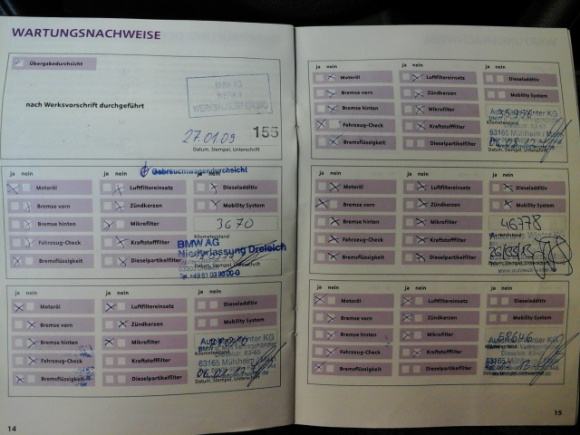 WARTUNGSNACHWEISE
Übergabedurchsicht
nach Werksvorschrift durchgeführt
BMW AG
27.01.09
155
Datum, Stempel, Unterschrift
Gebrauchtwagendurchsicht
ja nein
ja nein
ja nein
Motoröl
Luftfiltereinsatz
Dieseladditiv
Bremse vorn
Zündkerzen
Mobility System
Bremse hinten
Mikrofilter
3670
Kilometerstand
Fahrzeug-Check
Kraftstofffilter
BMW AG
Niederlassung Dreieich
Bremsflüssigkeit
Dieselpartikelfilter
ja nein
ja nein
Motoröl
Luftfiltereinsatz
Dieseladditiv
Bremse vorn
Zündkerzen
Mobility System
Bremse hinten
Mikrofilter
Kilometerstand
Fahrzeug-Check
Kraftstofffilter
63165 Mühlheim
Bremsflüssigkeit
Dieselpartikelfilter
Datum, Stempel, Unterschrift
14
ja nein
ja nein
Motoröl
Luftfiltereinsatz
Dieseladditiv
Bremse vorn
Zündkerzen
Mobility System
Bremse hinten
Mikrofilter
Fahrzeug-Check
Kraftstofffilter
63165 Mühlheim
Bremsflüssigkeit
Dieselpartikelfilter
Datum, Stempel, Unterschrift
ja nein
ja nein
ja nein
Motoröl
Luftfiltereinsatz
Dieseladditiv
Bremse vorn
Zündkerzen
Mobility System
Bremse hinten
Mikrofilter
46778
Fahrzeug-Check
Kraftstofffilter
Bremsflüssigkeit
Dieselpartikelfilter
ja nein
ja nein
Motoröl
Luftfiltereinsatz
Dieseladditiv
Bremse vorn
Zündkerzen
Mobility System
Bremse hinten
Mikrofilter
Fahrzeug-Check
Kraftstofffilter
63165 Mühlheim
Bremsflüssigkeit
Dieselpartikelfilter
Datum, Stempel, Unterschrift
15